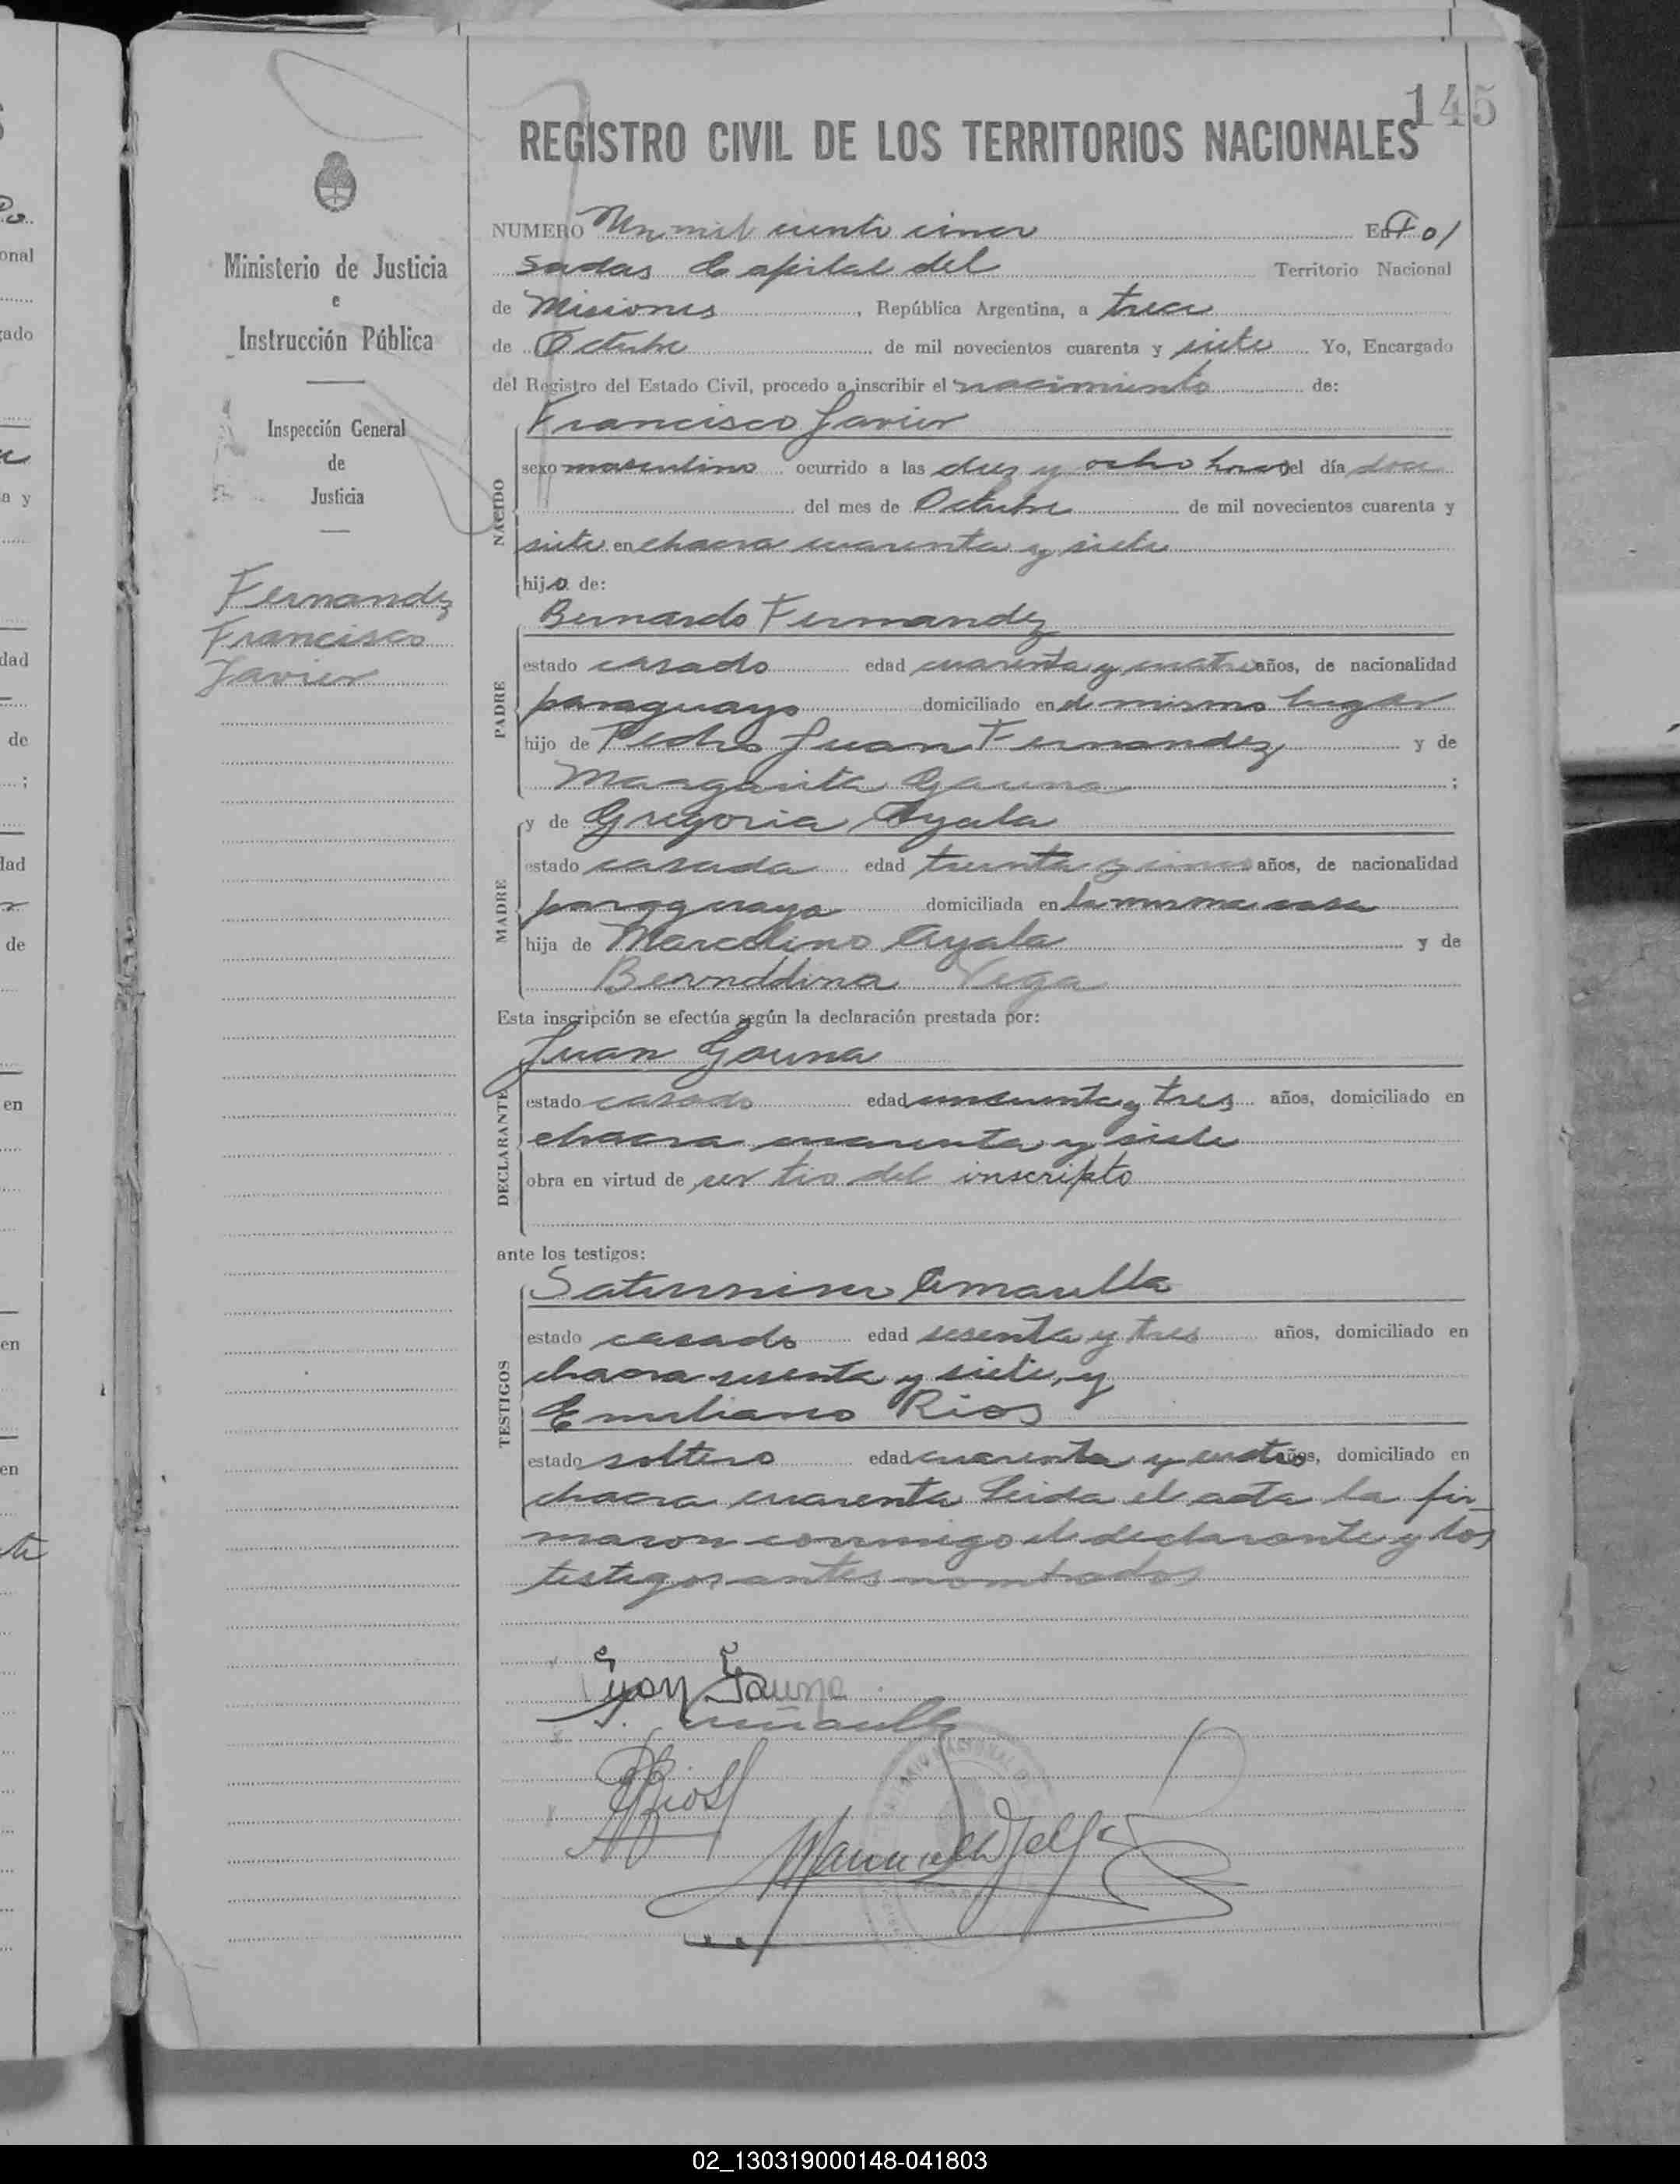 145
REGISTRO CIVIL DE LOS TERRITORIOS NACIONALES
Ministerio de Justicia
e
Instrucción Pública
Inspección General
de
Justicia
Fernandez
Francisco
Javier
NUMERO Un mil ciento cinco En Po/
sadas Capital del Territorio Nacional
de Misiones, República Argentina, a trece
de Octubre de mil novecientos cuarenta y siete Yo, Encargado
del Registro del Estado Civil, procedo a inscribir el nacimiento de:
NACIDO
Francisco Javier
sexo masculino ocurrido a las diez y ocho horas del día doce
del mes de Octubre de mil novecientos cuarenta y
siete en chacra cuarenta y siete
hijo de:
PADRE
Bernardo Fernandez
estado casado edad cuarenta y cuatro años, de nacionalidad
paraguayo domiciliado en el mismo lugar
hijo de Pedro Juan Fernandez y de
Margarita Gauna;
MADRE
y de Gregoria Ayala
estado casada edad treinta y cinco años, de nacionalidad
paraguaya domiciliada en la misma casa
hija de Marcelino Ayala y de
Bernddina Vega
Esta inscripción se efectúa según la declaración prestada por:
DECLARANTE
Juan Gauna
estado casado edad cincuenta y tres años, domiciliado en
chacra cuarenta y siete
obra en virtud de ser tio del inscripto
ante los testigos:
TESTIGOS
Saturnino
estado casado edad sesenta y tres años, domiciliado en
chacra sesenta y siete, y
Emiliano Rios
estado soltero edad cuarenta y cuatro años, domiciliado en
chacra cuarenta Leida el acta la fir-
maron conmigo el declarante y los
testigos antes nombrados
Juan Gauna
Rios
02_130319000148-041803